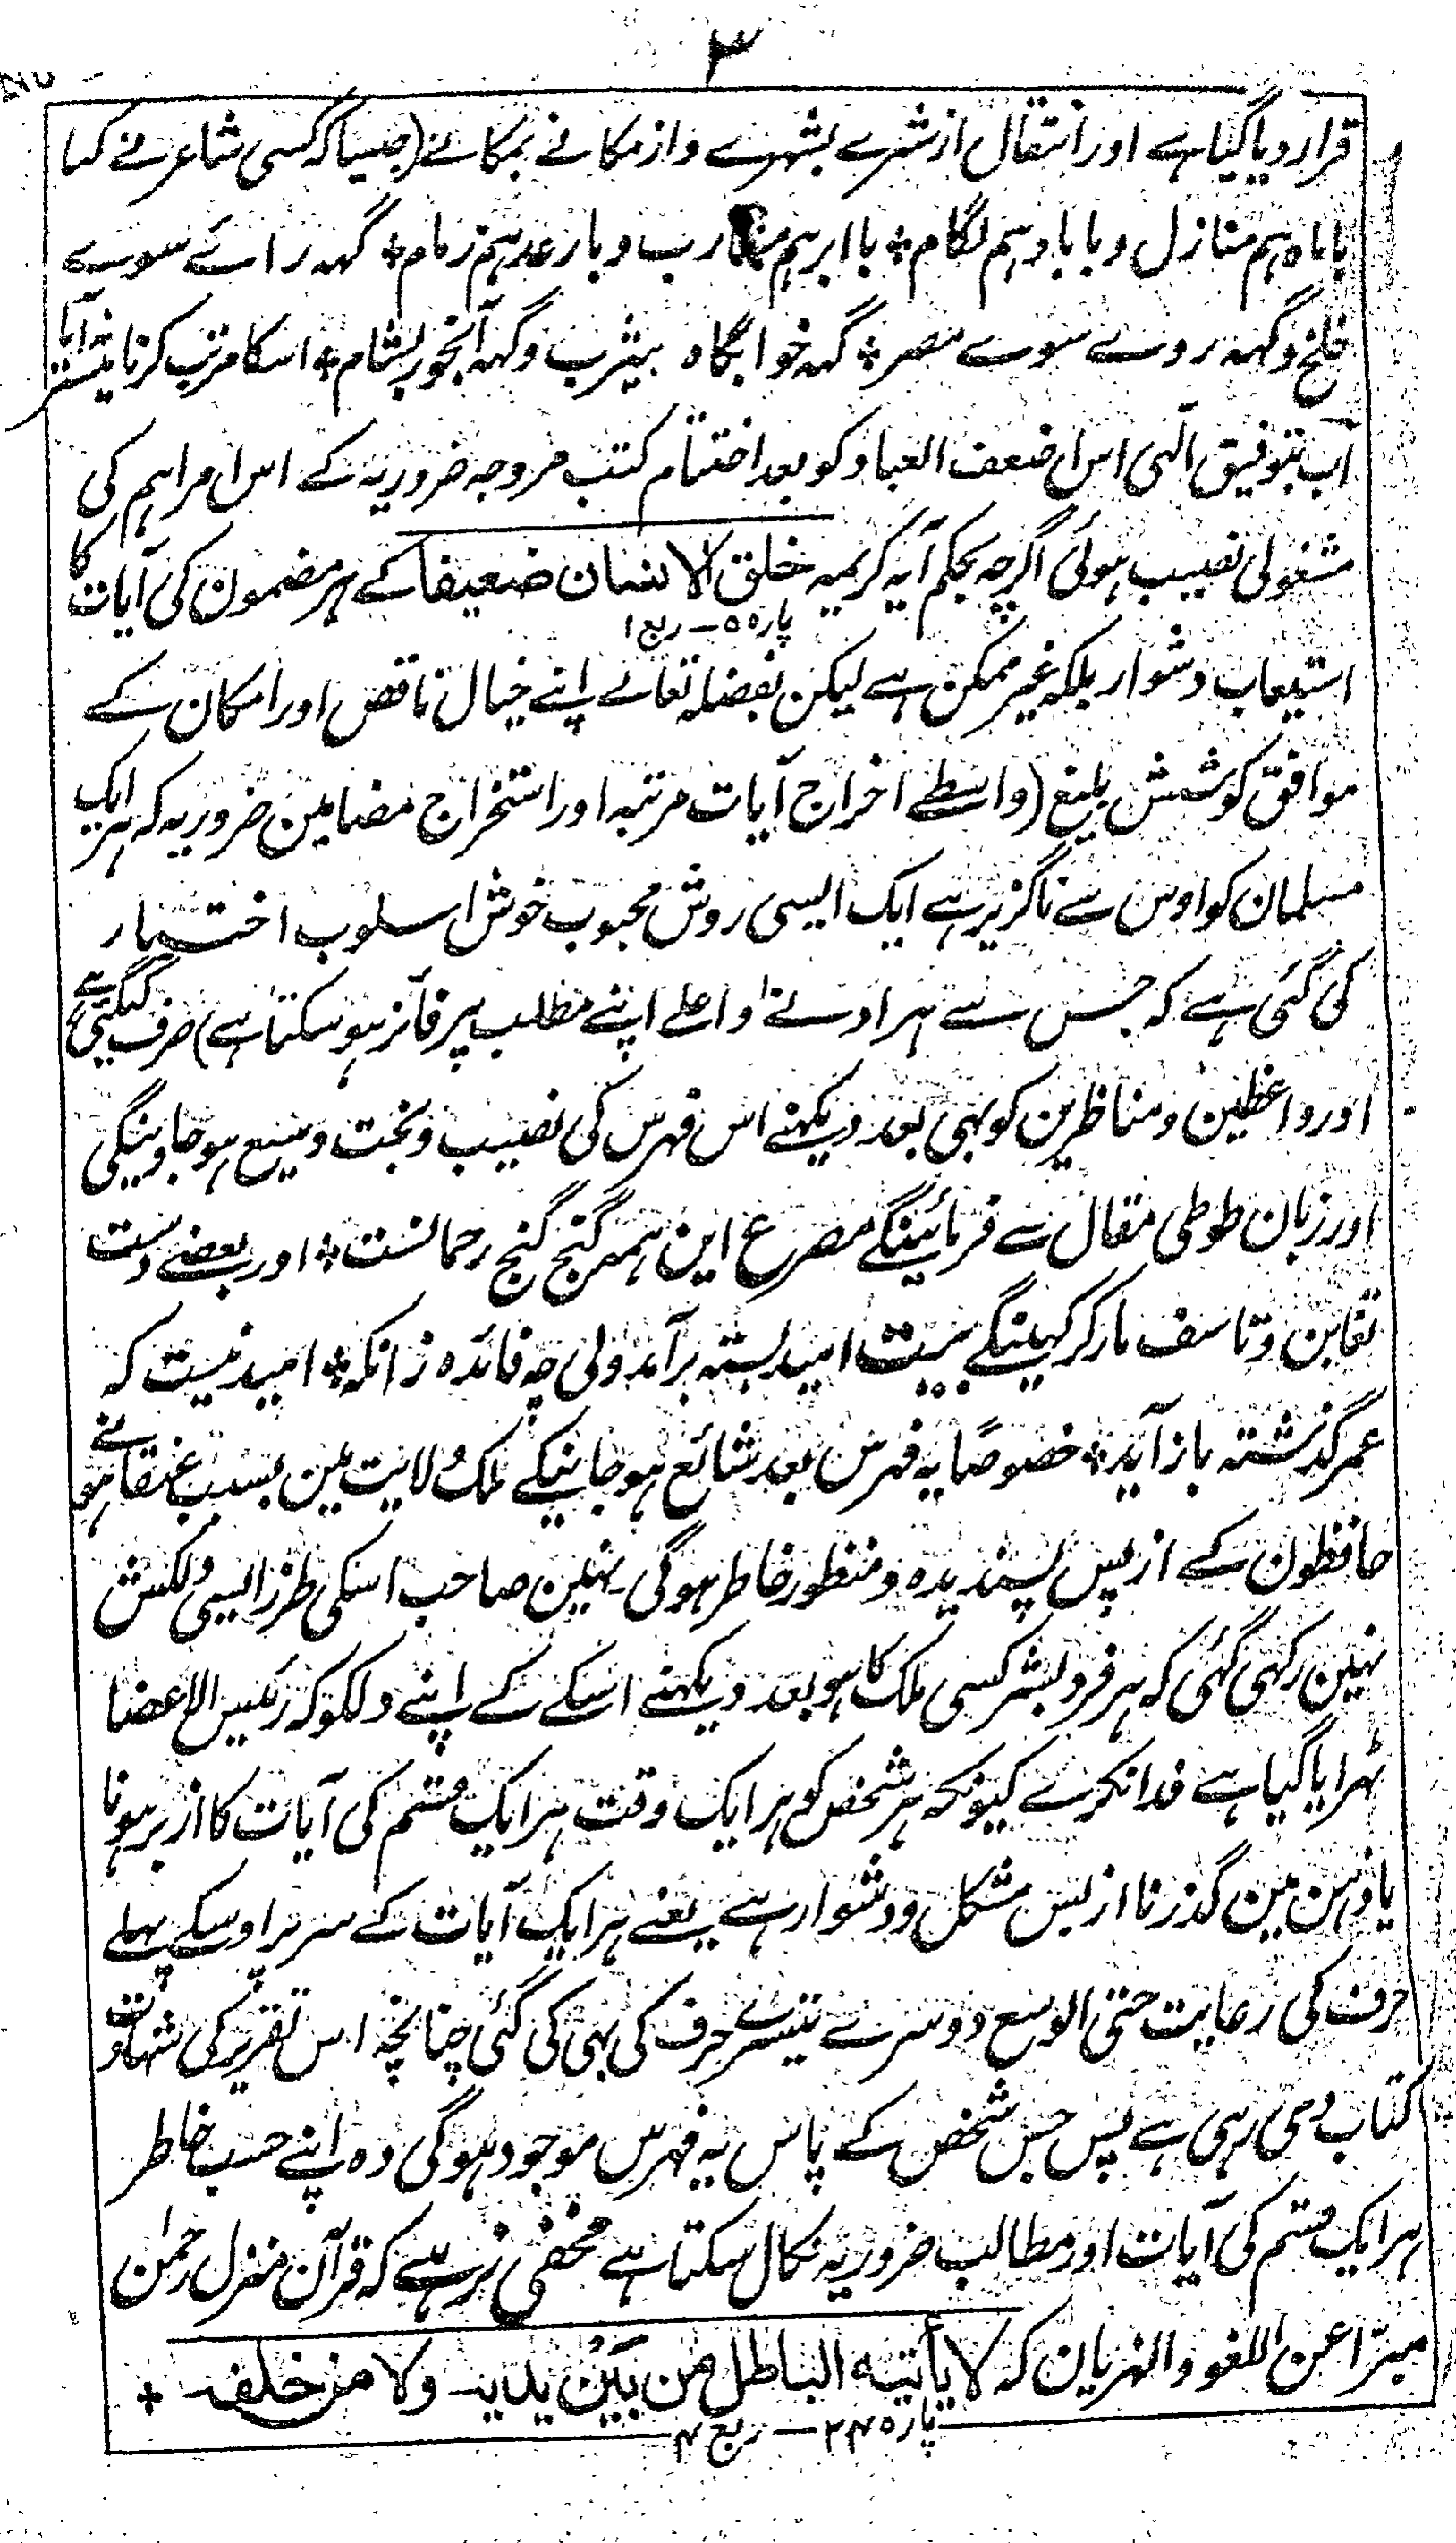 ۳
قرار دیا گیا ہے اور انتقال از شہرے بشہرے و از مکانے بمکانے (جیسا کہ کسی شاعر نے کہا
باماہ ہم منازل و باباد ہم لگام ؞ باابر ہم رب و بارعد ہم زمام ؞ گہہ رائے سوے
خلخ و گہہ روے سوے مصر ؞ گہہ خوابگاہ بیثرب و گہہ آبخور بشام ؞ اسکا مرتب کرنا پیشتر
اب بتوفیق الٰہی اس اضعف العباد کو بعد اختتام کتب مروجہ ضروریہ کے اس امر اہم کی
مشغولی نصیب ہوئی اگرچہ بحکم آیہ کریمہ خلق الانسان ضعیفا کے ہر مضمون کی آیات کا
پارہ ۵ — ربع ۱
استیعاب دشوار بلکہ غیر ممکن ہے لیکن بفضلہ تعالے اپنے خیال ناقص اور امکان کے
موافق کوشش بلیغ (واسطے اخراج آیات مرتبہ اور استخراج مضامین ضروریہ کہ ہر ایک
مسلمان کو اوس سے ناگزیر ہے ایک ایسی روش محبوب خوش اسلوب اختیار
کی گئی ہے کہ جس سے ہر ادنے و اعلے اپنے مطلب پر فائز ہو سکتا ہے) صرف کیگئی ہے
اور واعظین و مناظرین کو بہی بعد دیکہنے اس فہرس کی نصیب و بخت وسیع ہو جاوینگی
اور زبان طوطی مقال سے فرمائینگے مصرع این ہمہ گنج گنج رحمانست ؞ اور بعضے دست
تغابن و تاسف مار کر کہینگے بیت امید بستہ برآمد ولی چہ فائدہ زانکہ ؞ امید نیست کہ
عمر گذشتہ باز آید ؞ خصوصًا یہ فہرس بعد شائع ہو جانیکے ملک ولایت مین بسبب عنقا ہونے
حافظون کے از بس پسندیدہ و منظور خاطر ہوگی نہین صاحب اسکی طرز ایسی دلکش
نہین رکہی گئی کہ ہر فرد بشر کسی ملک کا ہو بعد دیکہنے اسکے کے اپنے دلکو کہ رئیس الاعضا
ٹہرایا گیا ہے فدا نکرے کیونکہ ہر شخص کو ہر ایک وقت ہر ایک قسم کی آیات کا ازبر ہونا
یا ذہن مین گذرنا از بس مشکل و دشوار ہے یعنے ہر ایک آیات کے سر پر اوسکے پہلے
حرف کی رعایت حتی الوسع دوسرے تیسرے حرف کی بہی کی گئی چنانچہ اس تقریر کی شہادت
کتاب دی رہی ہے پس جس شخص کے پاس یہ فہرس موجود ہوگی وہ اپنے حسب خاطر
ہر ایک قسم کی آیات اور مطالب ضروریہ نکال سکتا ہے مخفی نرہے کہ قرآن منزل رحمٰن
مبرّا عن اللغو والہزیان کہ لا یأتیہ الباطل من بین یدیہ ولا من خلفہ +
پارہ ۲۴ — ربع ۴